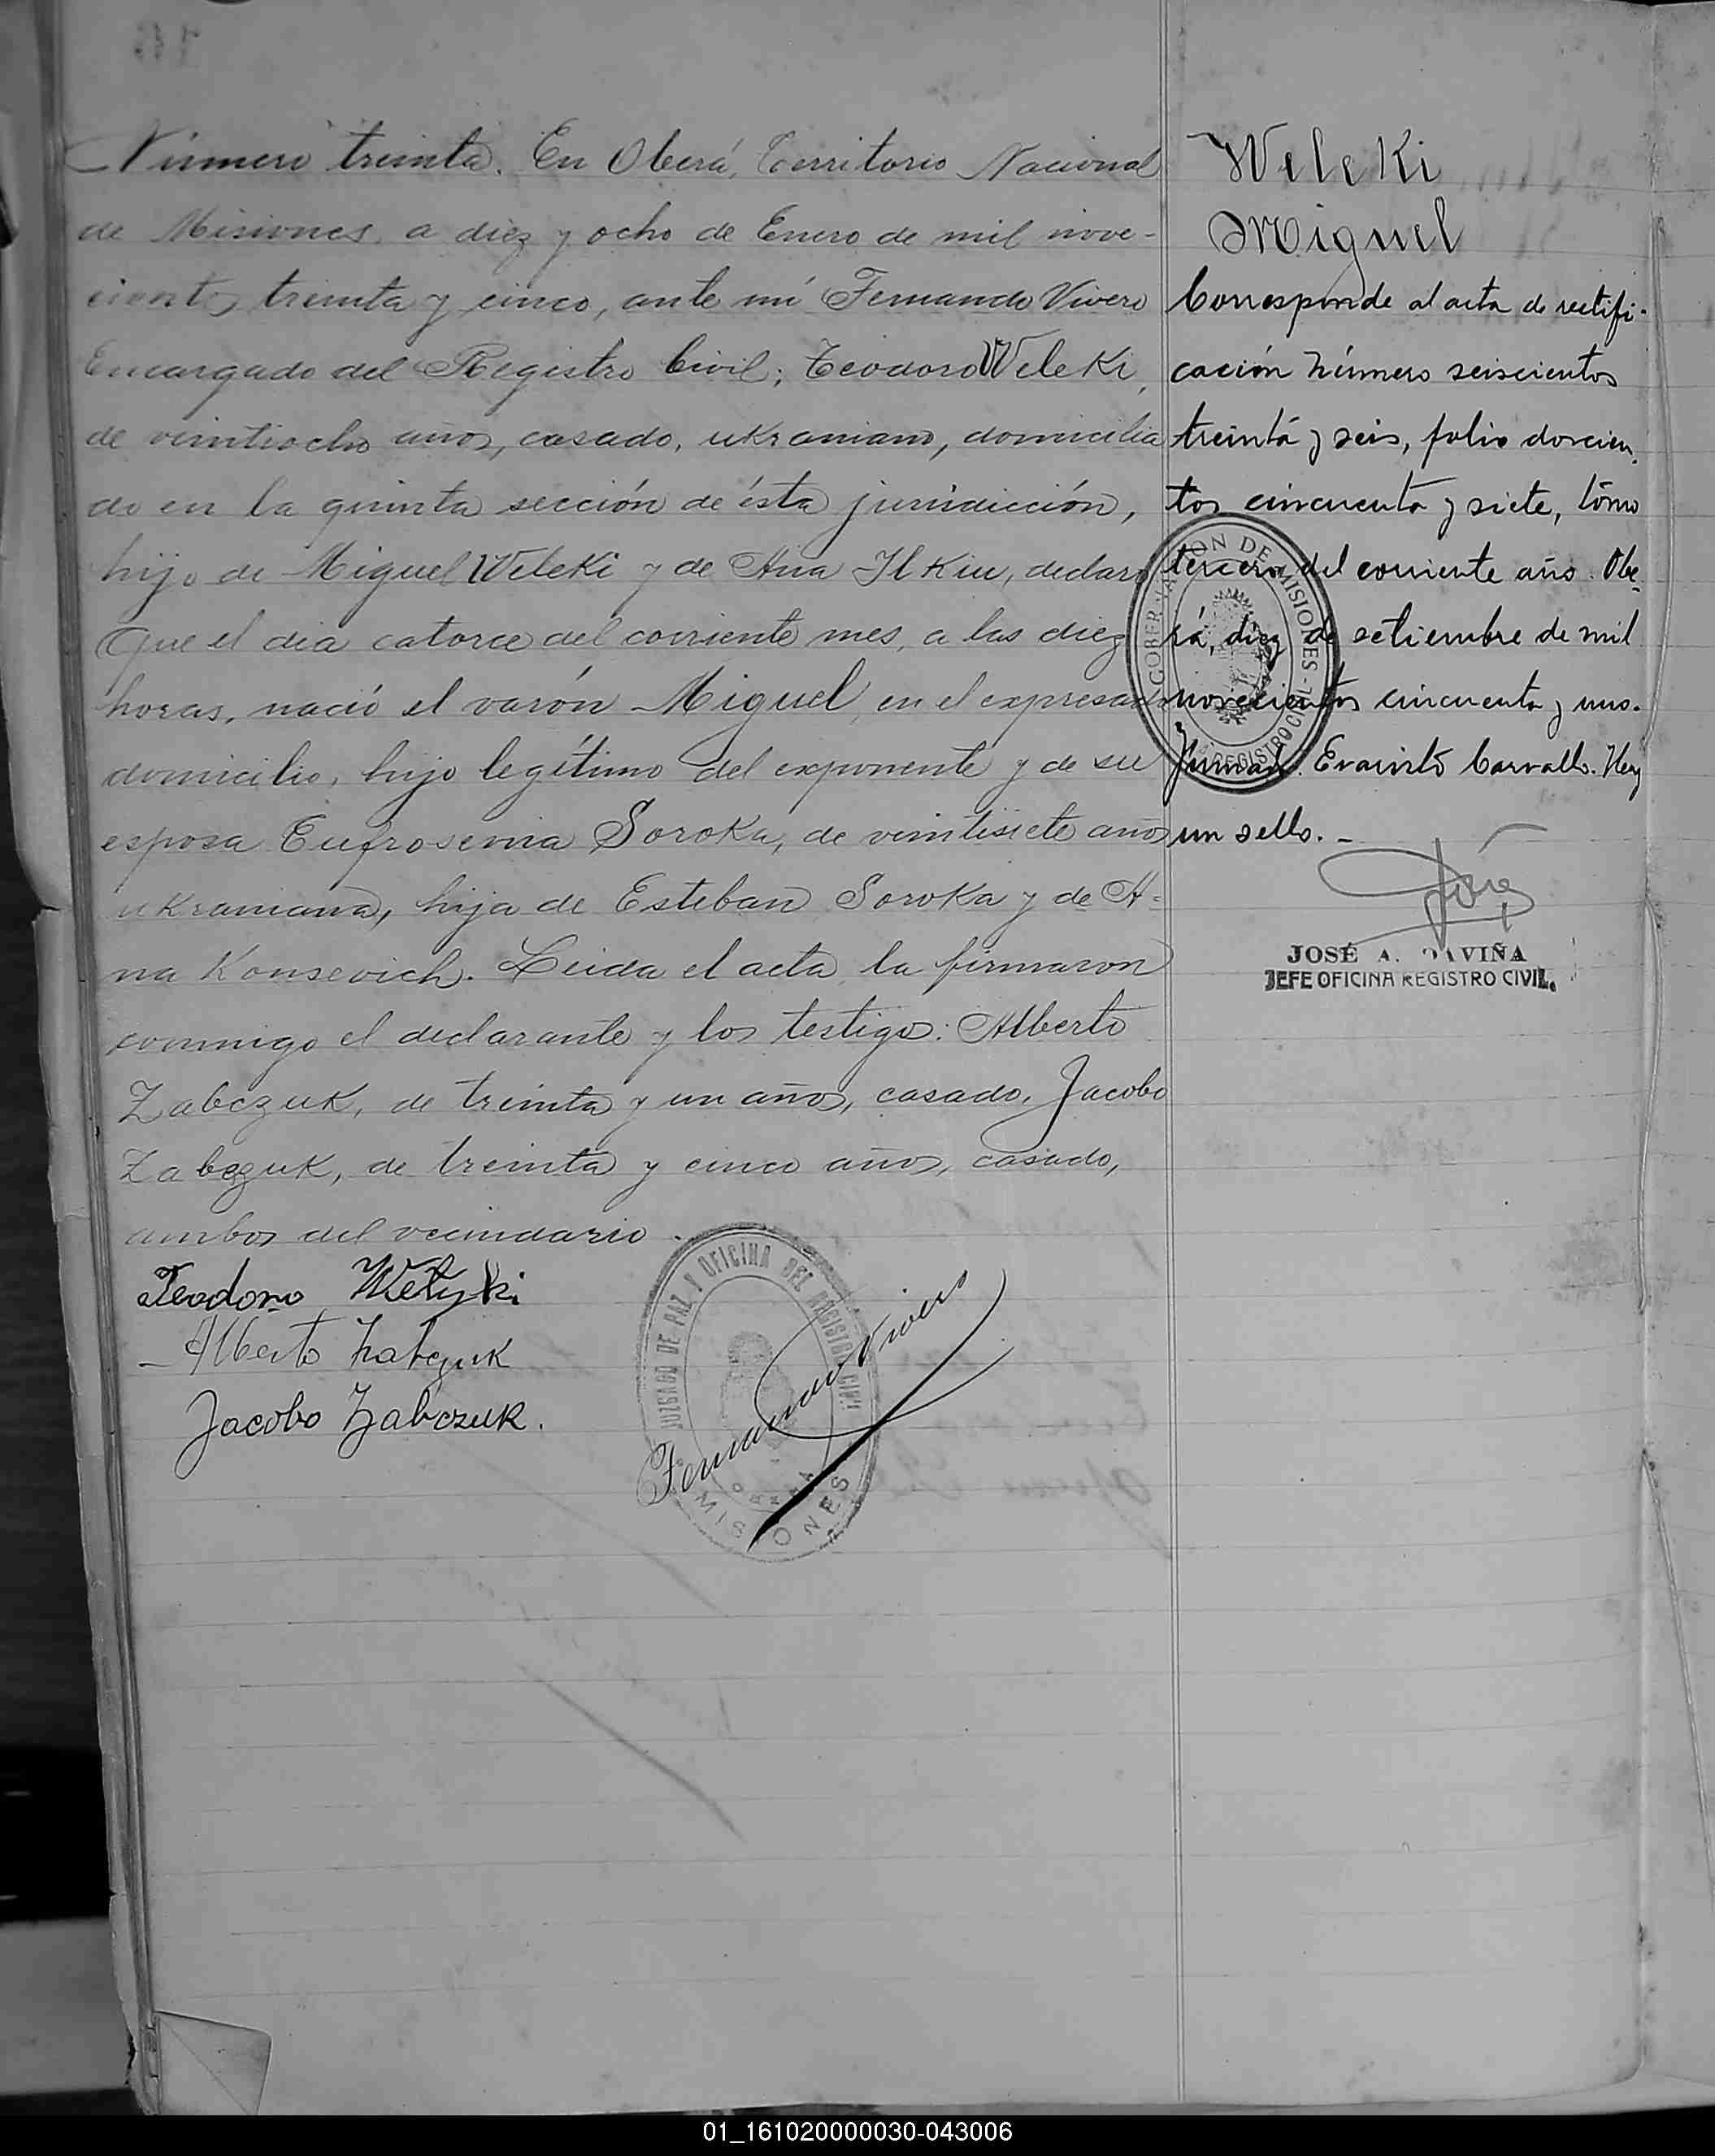 Número treinta. En Oberá, Territorio Nacional
de Misiones, a diez y ocho de Enero de mil nove-
cientos treinta y cinco, ante mí Fernando Vivero
Encargado del Registro Civil; Teodoro WeleKi,
de veintiocho años, casado, uKraniano, domicilia
do en la quinta sección de ésta jurisdicción,
hijo de Miguel WeleKi y de Ana IlKiu, declaró
Que el dia catorce del corriente mes, a las diez
horas, nació el varón Miguel, en el expresado
domicilio, hijo legítimo del exponente y de su
esposa Eufrosenia SoroKa, de veintisiete años
uKraniana, hija de Esteban SoroKa y de A-
na Konsevich. Leida el acta, la firmaron
conmigo el declarante y los testigos: Alberto
ZabczuK, de treinta y un años, casado, Jacobo
ZabczuK, de treinta y cinco años, casado,
ambos del vecindario.
Teodoro Wełyki
Alberto Zabczuk
Jacobo Zabczuk.
Fernando Vivero
JUZGADO DE PAZ Y OFICINA DEL REGISTRO CIVIL
MISIONES
WeleKi
Miguel
Corresponde al acta de rectifi-
cación número seiscientos
treinta y seis, folio doscien-
tos cincuenta y siete, tomo
tercero del corriente año. Obe-
rá, diez de setiembre de mil
novecientos cincuenta y uno.
Firmado. Evaristo Carvallo. Hay
un sello.-
GOBERNACION DE MISIONES - REGISTRO CIVIL
JOSÉ A. DAVIÑA
JEFE OFICINA REGISTRO CIVIL.
01_161020000030-043006